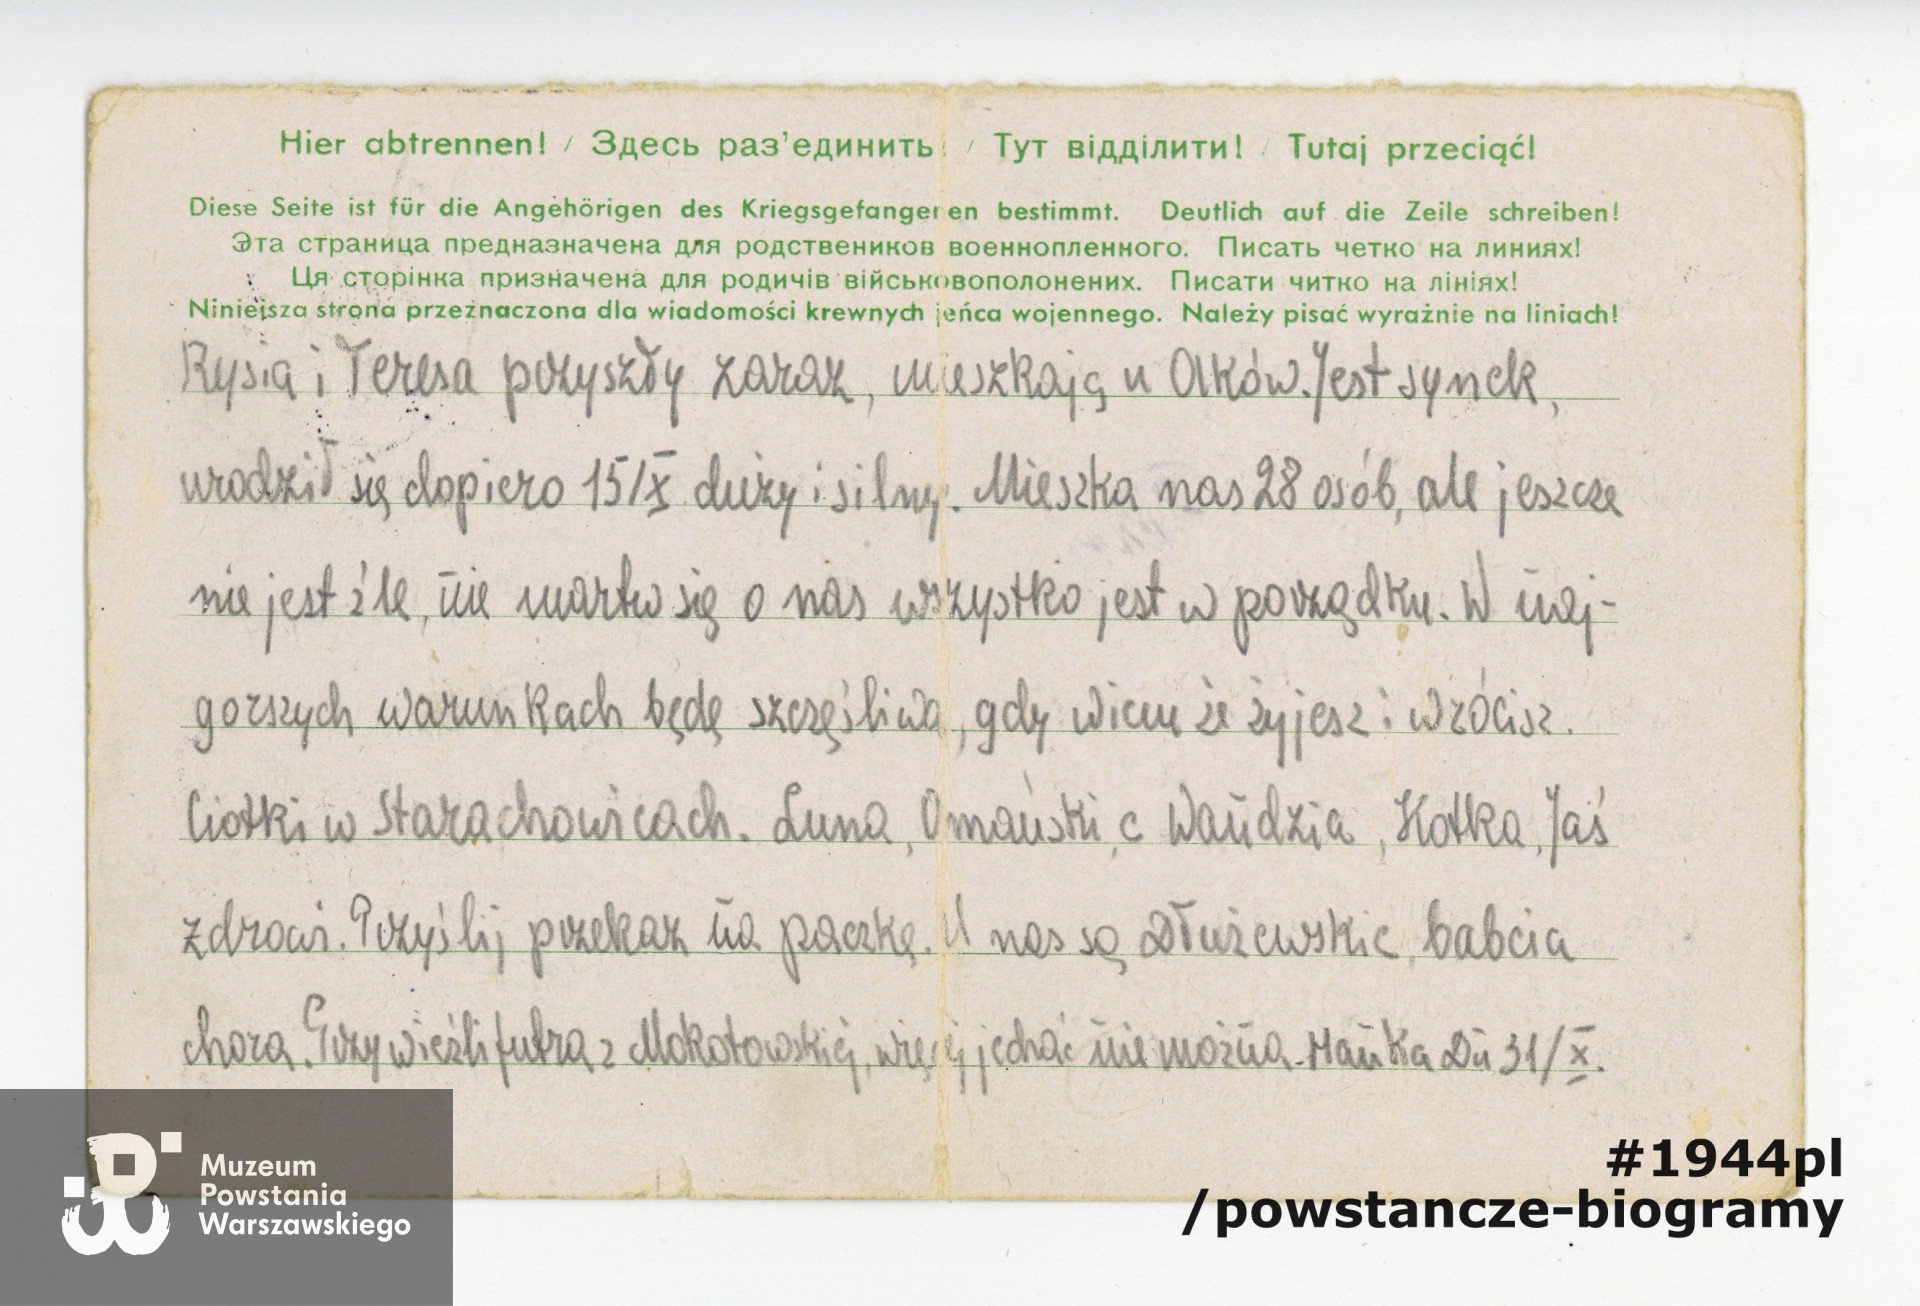 Hier abtrennen! / Здесь раз'единить! / Тут відділити! / Tutaj przeciąć!
Diese Seite ist für die Angehörigen des Kriegsgefangenen bestimmt. Deutlich auf die Zeile schreiben!
Эта страница предназначена для родствеников военнопленного. Писать четко на линиях!
Ця сторінка призначена для родичів військовополонених. Писати читко на лініях!
Niniejsza strona przeznaczona dla wiadomości krewnych jeńca wojennego. Należy pisać wyraźnie na liniach!
Rysia i Teresa przyszły zaraz, mieszkają u Olków. Jest synek,
urodził się dopiero 15/X duży i silny. Mieszka nas 28 osób, ale jeszcze
nie jest źle, nie martw się o nas wszystko jest w porządku. W naj-
gorszych warunkach będę szczęśliwa, gdy wiem że żyjesz i wrócisz.
Ciotki w Starachowicach. Luna, Omański, c Wandzia, Kotka, Jaś
zdrowi. Przyślij przekaz na paczkę. U nas są Dłużewskie, babcia
chora. Przywieźli futra z Mokotowskiej, więcej jechać nie można. Hanka Dn 31/X.
Muzeum
Powstania
Warszawskiego
#1944pl
/powstancze-biogramy